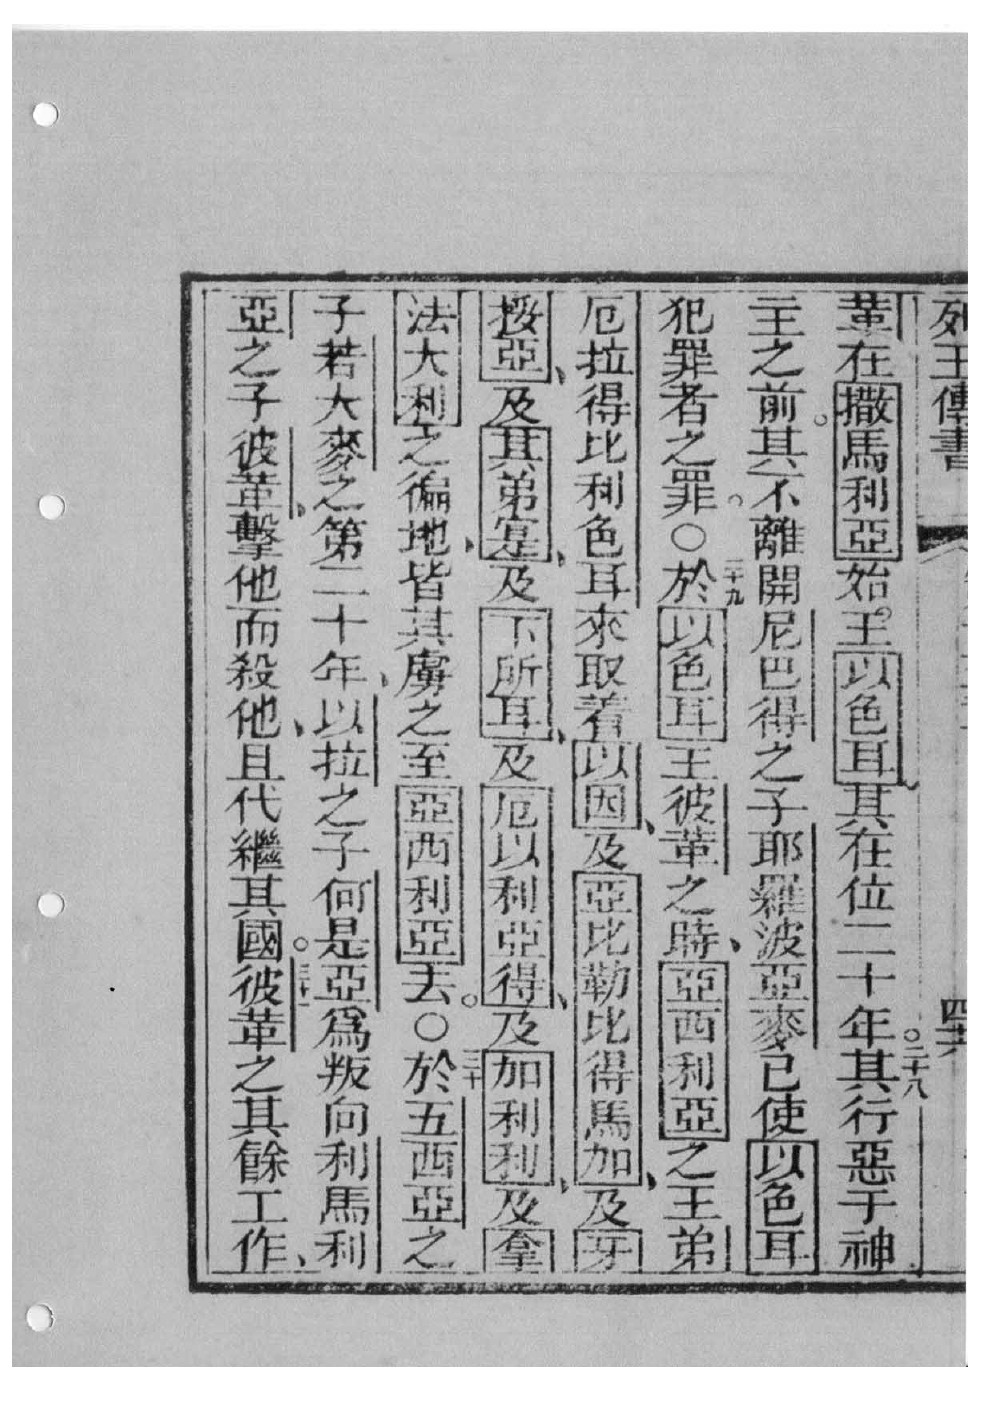 列王傳書 四十六
革在撒馬利亞始王以色耳其在位二十年。二十八其行惡于神
主之前。其不離開尼巴得之子耶羅波亞麥已使以色耳
犯罪者之罪。○二十九於以色耳王彼革之時、亞西利亞之王弟
厄拉得比利色耳來取着以因、及亞比勒比得馬加、及牙
挼亞、及其弟寔、及下所耳、及厄以利亞得、及加利利、及拿
法大利之徧地、皆其虜之至亞西利亞去。○三十於五西亞之
子若大麥之第二十年、以拉之子何是亞爲叛向利馬利
亞之子彼革、擊他而殺他、且代繼其國。三十一彼革之其餘工作、